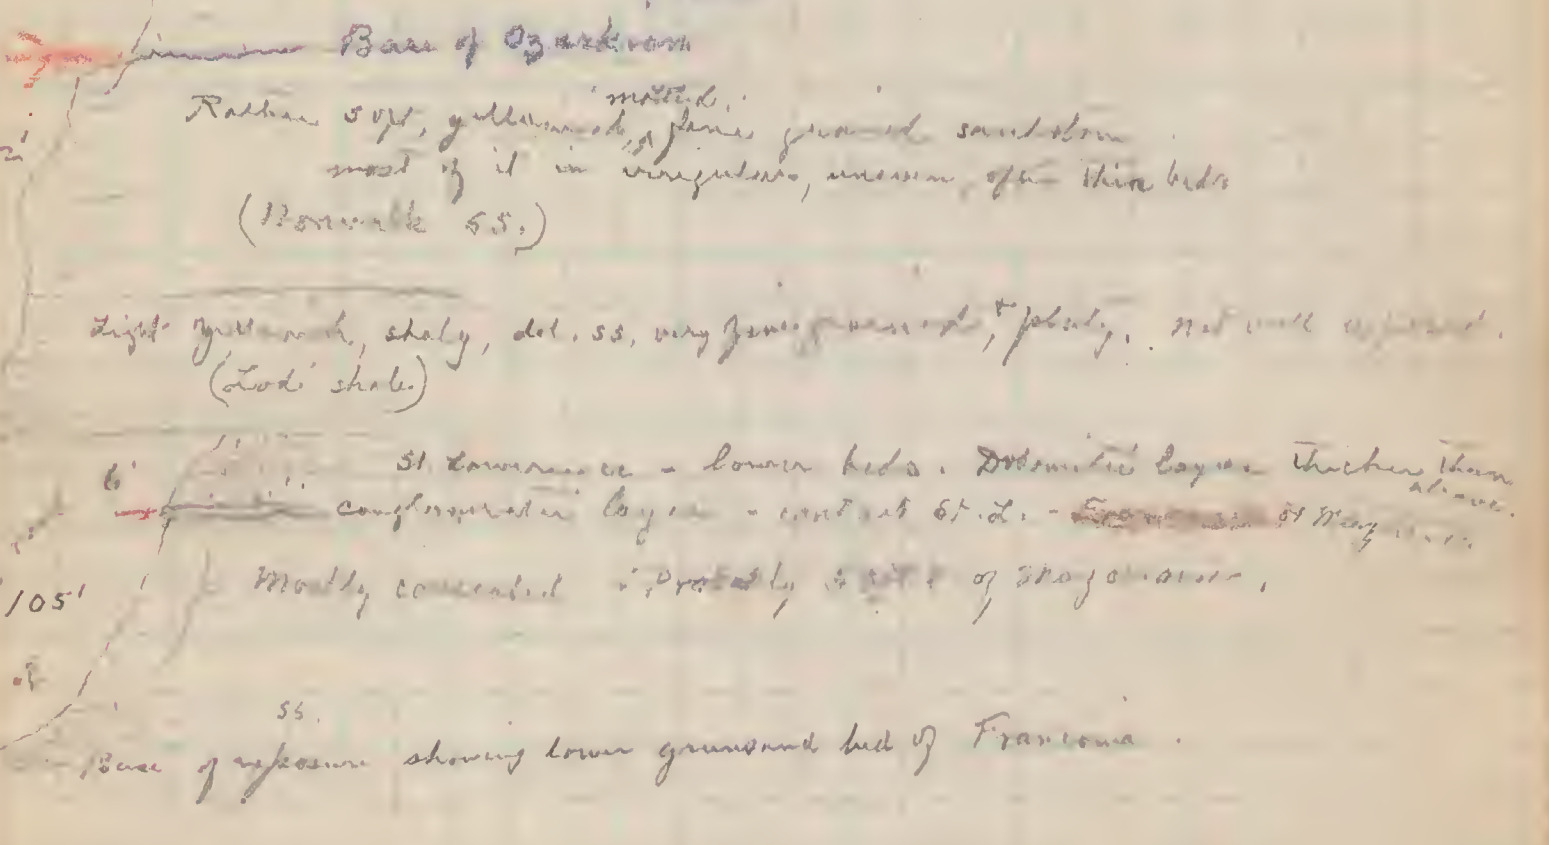 Base of Ozarkian
mottled,
Rather soft, yellowish, fine grained sandstone
2'
most of it in irregular, uneven, often thin beds
(Norwalk ss.)
Light yellowish, shaly, dol. ss, very fine grained, + platy. Not well exposed.
(Lodi shale)
6' St. Lawrence - lower beds. Dolomitic layer thicker than
above.
conglomeratic layer - contact St. L. -
105' Mostly concealed - Probably of Mazomanie.
ss.
Base of exposure showing lower greensand bed of Franconia.